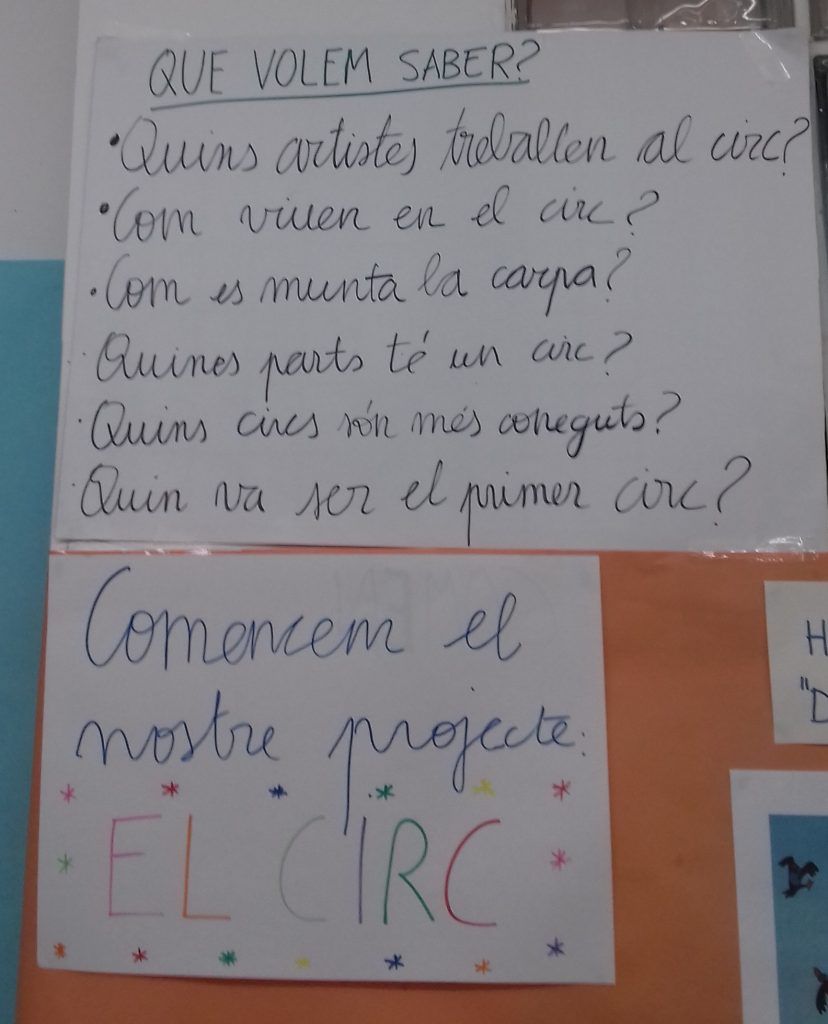 QUE VOLEM SABER?
• Quins artistes treballen al circ?
• Com viuen en el circ?
• Com es munta la carpa?
· Quines parts té un circ?
· Quins circs són més coneguts?
· Quin va ser el primer circ?
Comencem el
nostre projecte:
EL CIRC
H
"D